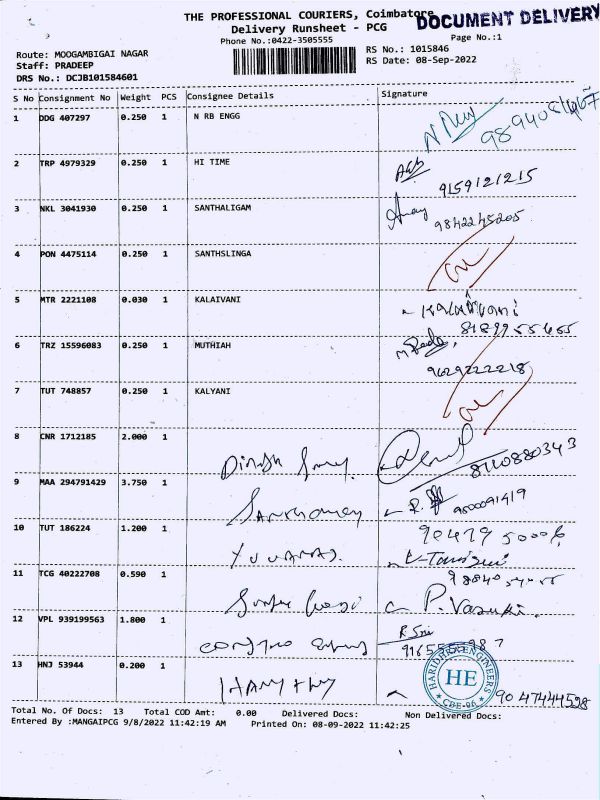 THE PROFESSIONAL COURIERS, Coimbatore
DOCUMENT DELIVERY
Delivery Runsheet - PCG
Phone No.:0422-3505555
Page No.:1
Route: MOOGAMBIGAI NAGAR
RS No.: 1015846
Staff: PRADEEP
RS Date: 08-Sep-2022
DRS No.: DCJB101584601
S No Consignment No Weight PCS Consignee Details Signature
1 DDG 407297 0.250 1 N RB ENGG
2 TRP 4979329 0.250 1 HI TIME
9159121215
3 NKL 3041930 0.250 1 SANTHALIGAM
9842245205
4 PON 4475114 0.250 1 SANTHSLINGA
5 MTR 2221108 0.030 1 KALAIVANI
6 TRZ 15596083 0.250 1 MUTHIAH
9629222218
7 TUT 748857 0.250 1 KALYANI
8 CNR 1712185 2.000 1
8110880343
9 MAA 294791429 3.750 1
9500091419
10 TUT 186224 1.200 1
11 TCG 40222708 0.590 1
P. Vasuki.
12 VPL 939199563 1.800 1
13 HNJ 53944 0.200 1
HARIDHA ENGINEERS
HE
CBE-06
9047444598
Total No. Of Docs: 13 Total COD Amt: 0.00 Delivered Docs: Non Delivered Docs:
Entered By :MANGAIPCG 9/8/2022 11:42:19 AM Printed On: 08-09-2022 11:42:25